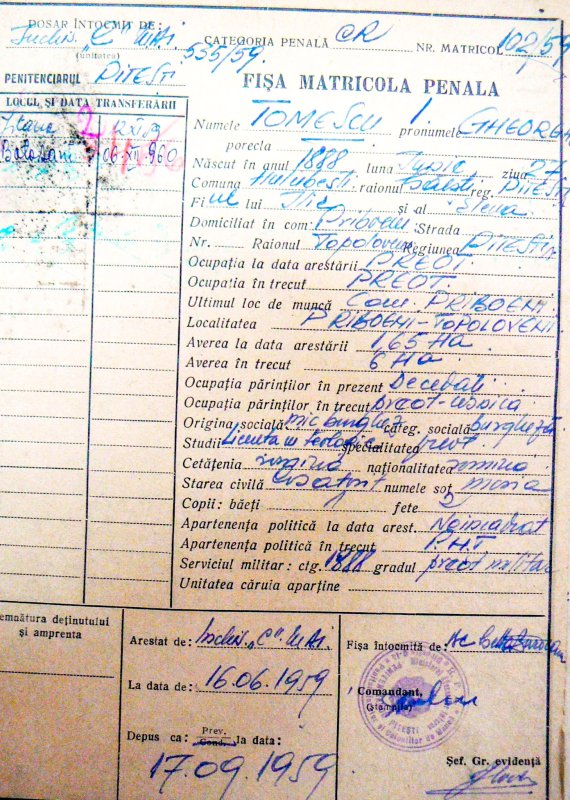 DOSAR ÎNTOCMIT DE:
"C" M.A.I.
(unitatea)
535/59.
CATEGORIA PENALĂ CR
NR. MATRICOL 102/59
PENITENCIARUL PITEȘTI
FIȘA MATRICOLA PENALA
LOCUL ȘI DATA TRANSFERĂRII
Jilava 2 XI 59
Botoșani 06-XII-960
Numele TOMESCU I. pronumele GHEORGH
porecla
Născut în anul 1888 luna Iunie ziua 27
Comuna Hulubești raionul Găești reg. PITEȘTI
Fiul lui Ilie și al Elena
Domiciliat în com. Priboeni Strada
Nr. Raionul Topoloveni Regiunea PITEȘTI
Ocupația la data arestării PREOT.
Ocupația în trecut PREOT.
Ultimul loc de muncă Com. PRIBOENI
Localitatea PRIBOENI-TOPOLOVENI
Averea la data arestării 1,65 Ha
Averea în trecut 6 Ha
Ocupația părinților în prezent Decedați
Ocupația părinților în trecut preot-casnica
Origina socială mic burgheză categ. socială burgheză
Studii Licența în teologie specialitatea preot
Cetățenia romina naționalitatea romina
Starea civilă numele soț
Copii: băeți fete 2
Apartenența politică la data arest. Neincadrat
Apartenența politică în trecut P.N.Ț.
Serviciul militar: ctg. 1888 gradul preot militar
Unitatea căruia aparține
emnătura deținutului
și amprenta
Arestat de: "C" M.A.I.
La data de: 16.06.1959
Depus ca: Prev. Cond. la data:
17.09.1959
Fișa întocmită de:
Comandant,
(ștampila)
PITEȘTI
Șef. Gr. evidență